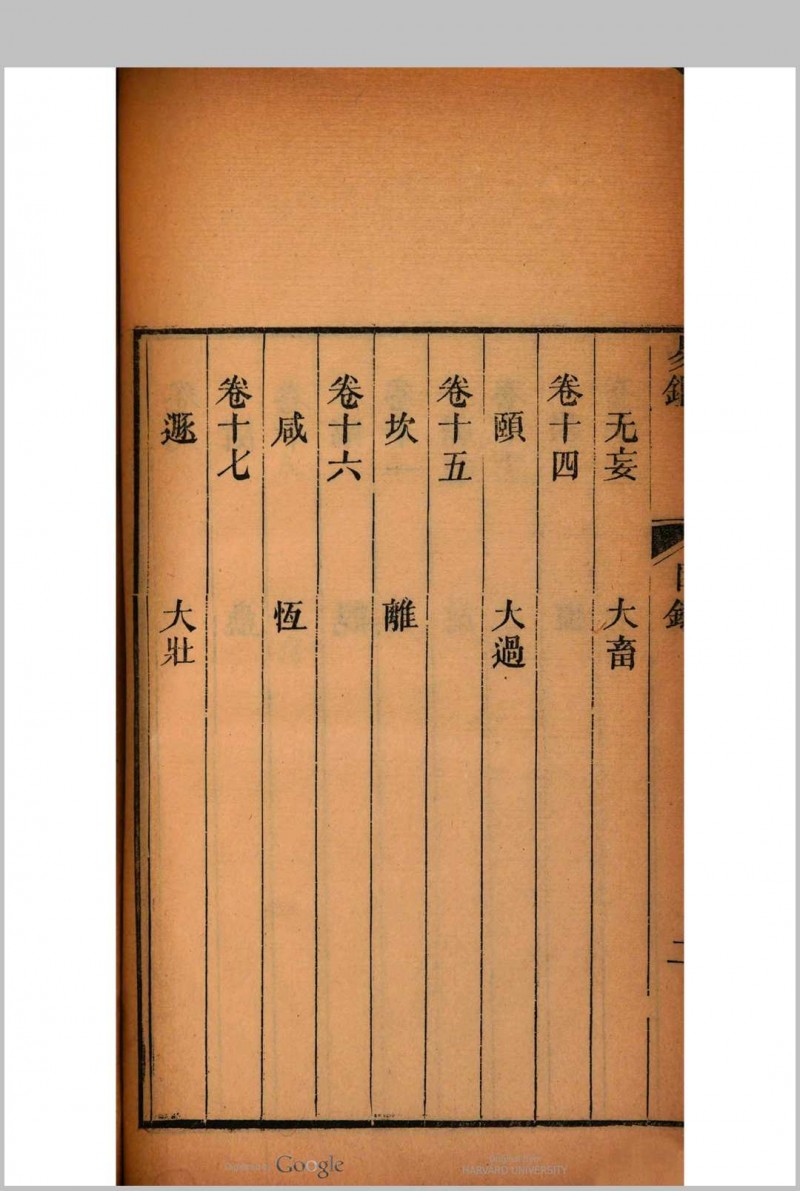 易鏡 目錄 二
无妄 大畜
卷十四
頤 大過
卷十五
坎 離
卷十六
咸 恆
卷十七
遯 大壯
Digitized by Google
Original from
HARVARD UNIVERSITY